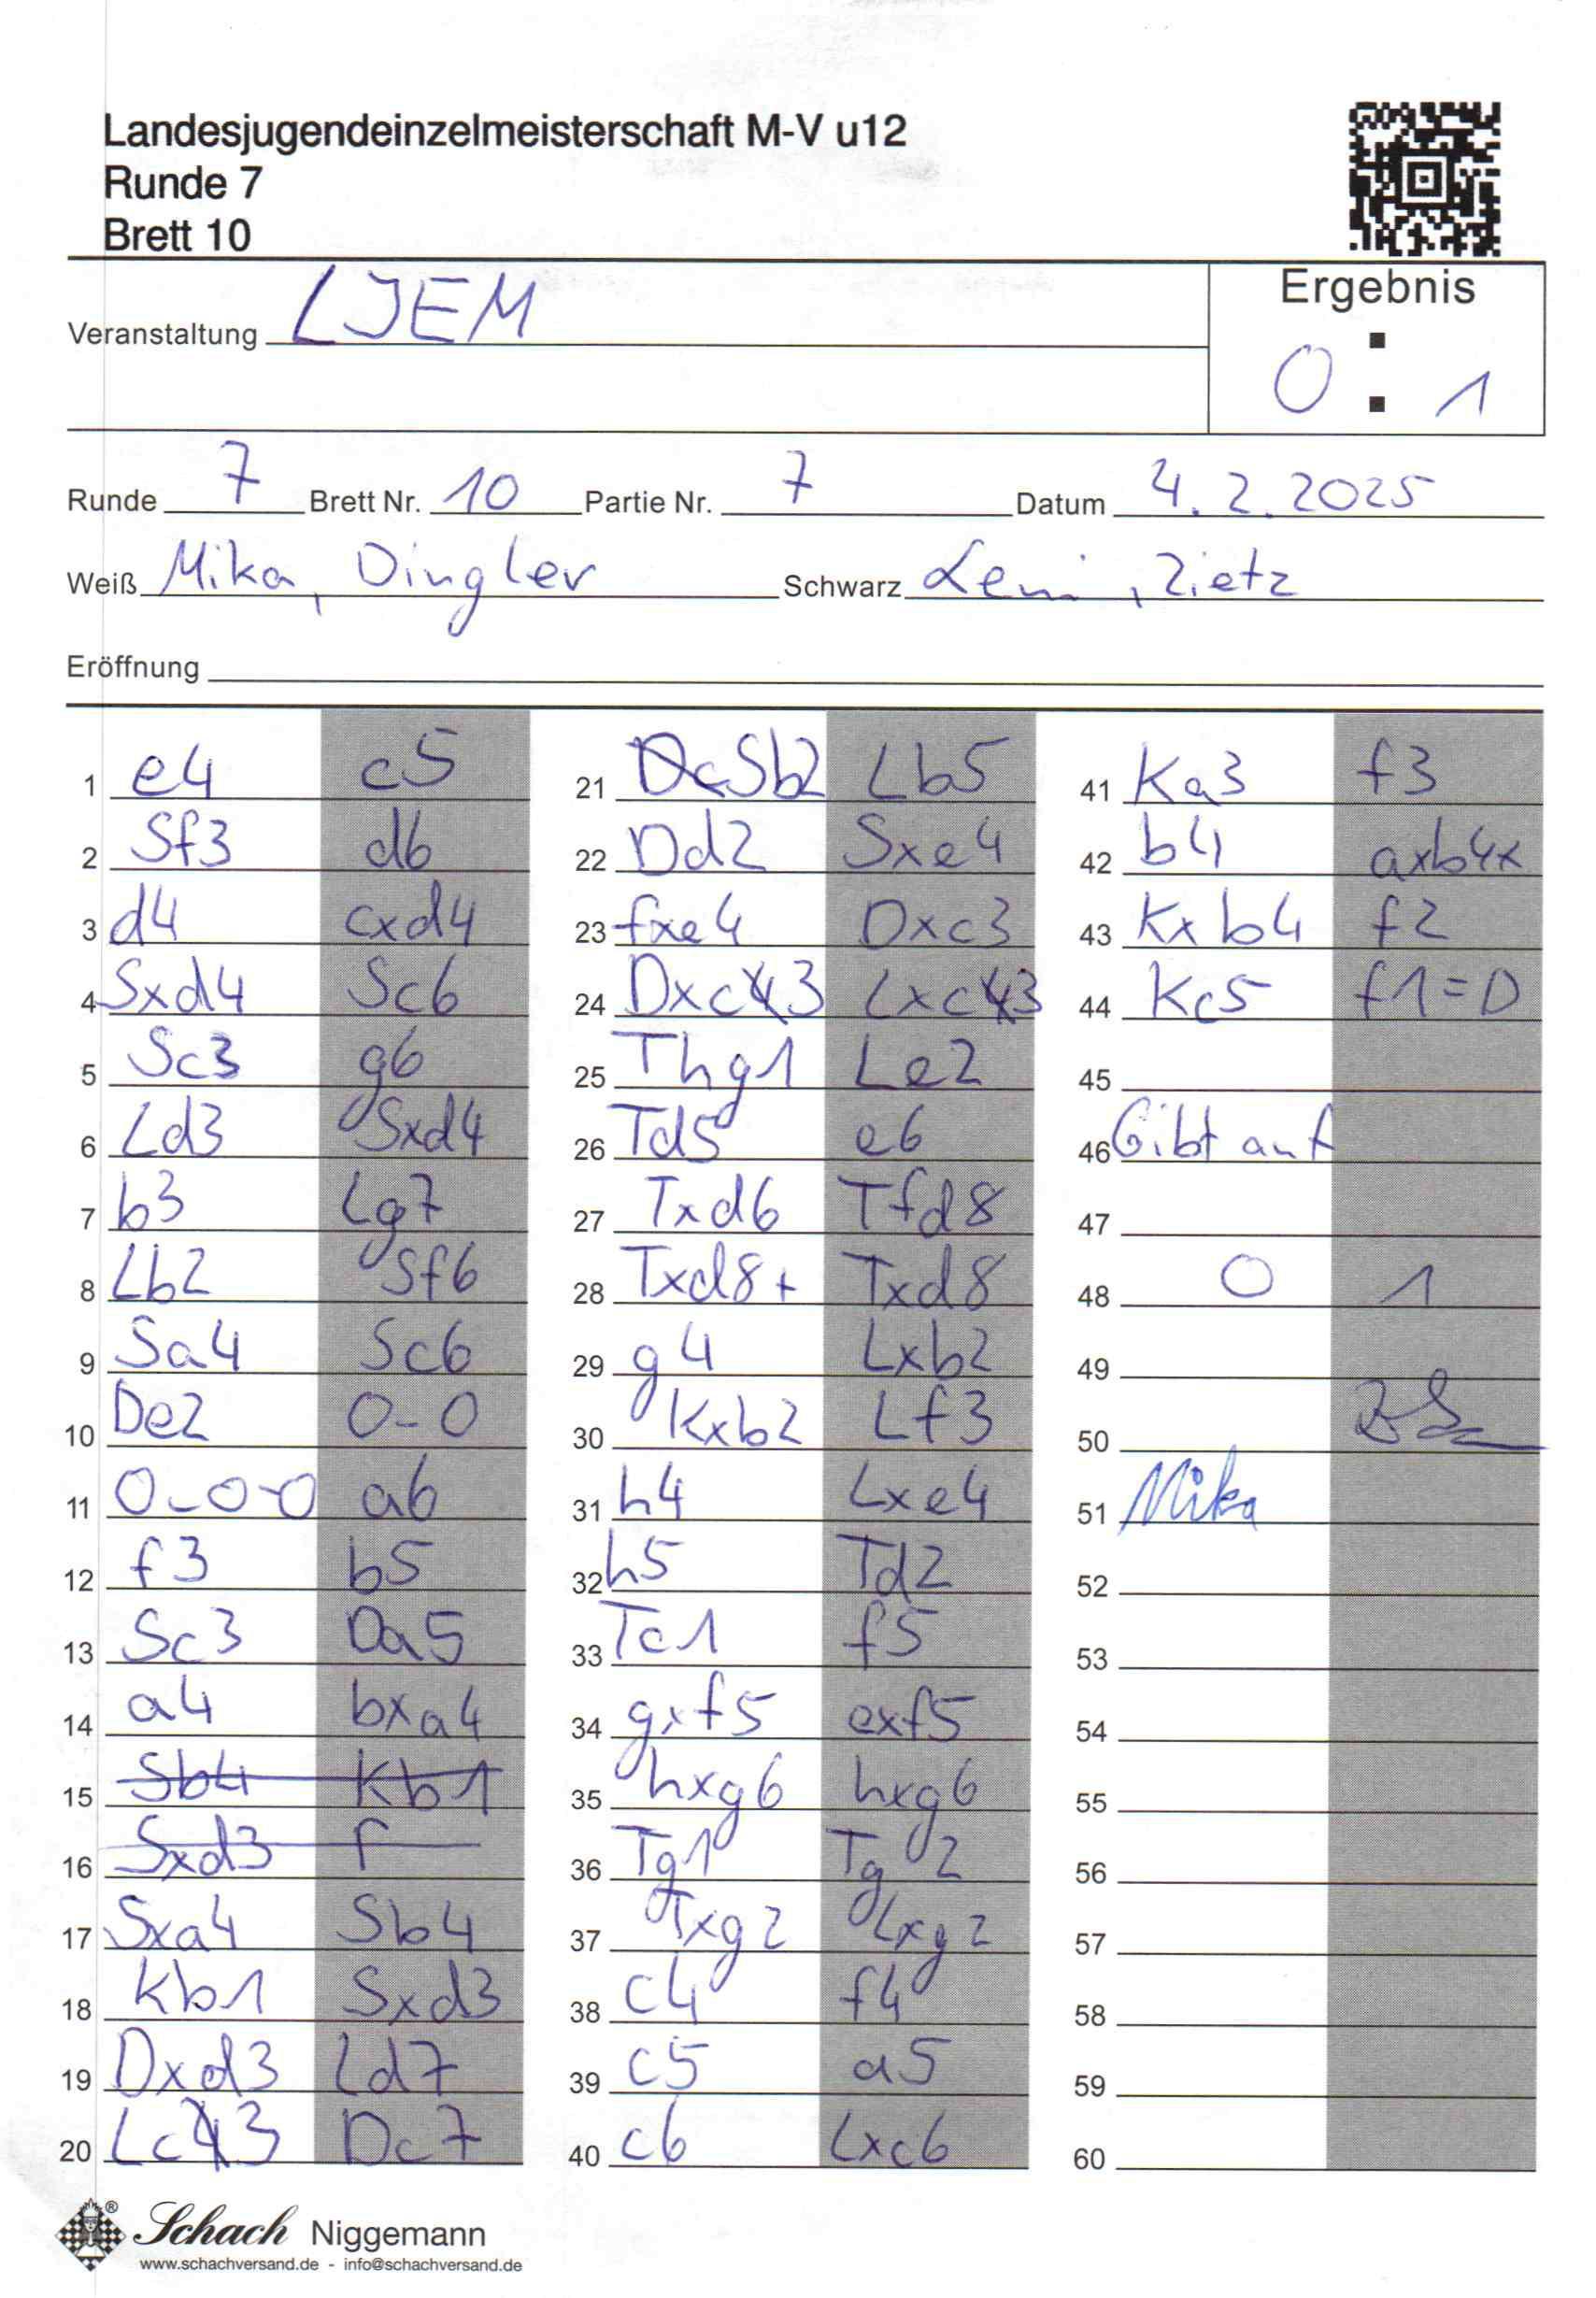 Landesjugendeinzelmeisterschaft M-V u12
Runde 7
Brett 10
Veranstaltung LJEM
Ergebnis
0 : 1
Runde 7 Brett Nr. 10 Partie Nr. 7 Datum 4.2.2025
Weiß Mika, Dingler Schwarz Leni, Zietz
Eröffnung
1 e4 c5
2 Sf3 d6
3 d4 cxd4
4 Sxd4 Sc6
5 Sc3 g6
6 Ld3 Sxd4
7 b3 Lg7
8 Lb2 Sf6
9 Sa4 Sc6
10 De2 0-0
11 0-0-0 a6
12 f3 b5
13 Sc3 Da5
14 a4 bxa4
15 Sb4 Kb1
16 Sxd3 f
17 Sxa4 Sb4
18 Kb1 Sxd3
19 Dxd3 Ld7
20 Lc3 Dc7
21 Sb2 Lb5
22 Dd2 Sxe4
23 fxe4 Dxc3
24 Dxc3 Lxc3
25 Thg1 Le2
26 Td5 e6
27 Txd6 Tfd8
28 Txd8+ Txd8
29 g4 Lxb2
30 Kxb2 Lf3
31 h4 Lxe4
32 h5 Td2
33 Tc1 f5
34 gxf5 exf5
35 hxg6 hxg6
36 Tg1 Tg2
37 Txg2 Lxg2
38 c4 f4
39 c5 a5
40 c6 Lxc6
41 Ka3 f3
42 b4 axb4x
43 Kxb4 f2
44 Kc5 f1=D
45
46 Gibt auf
47
48 0 1
49
50
51 Mika
52
53
54
55
56
57
58
59
60
Schach Niggemann
www.schachversand.de - info@schachversand.de